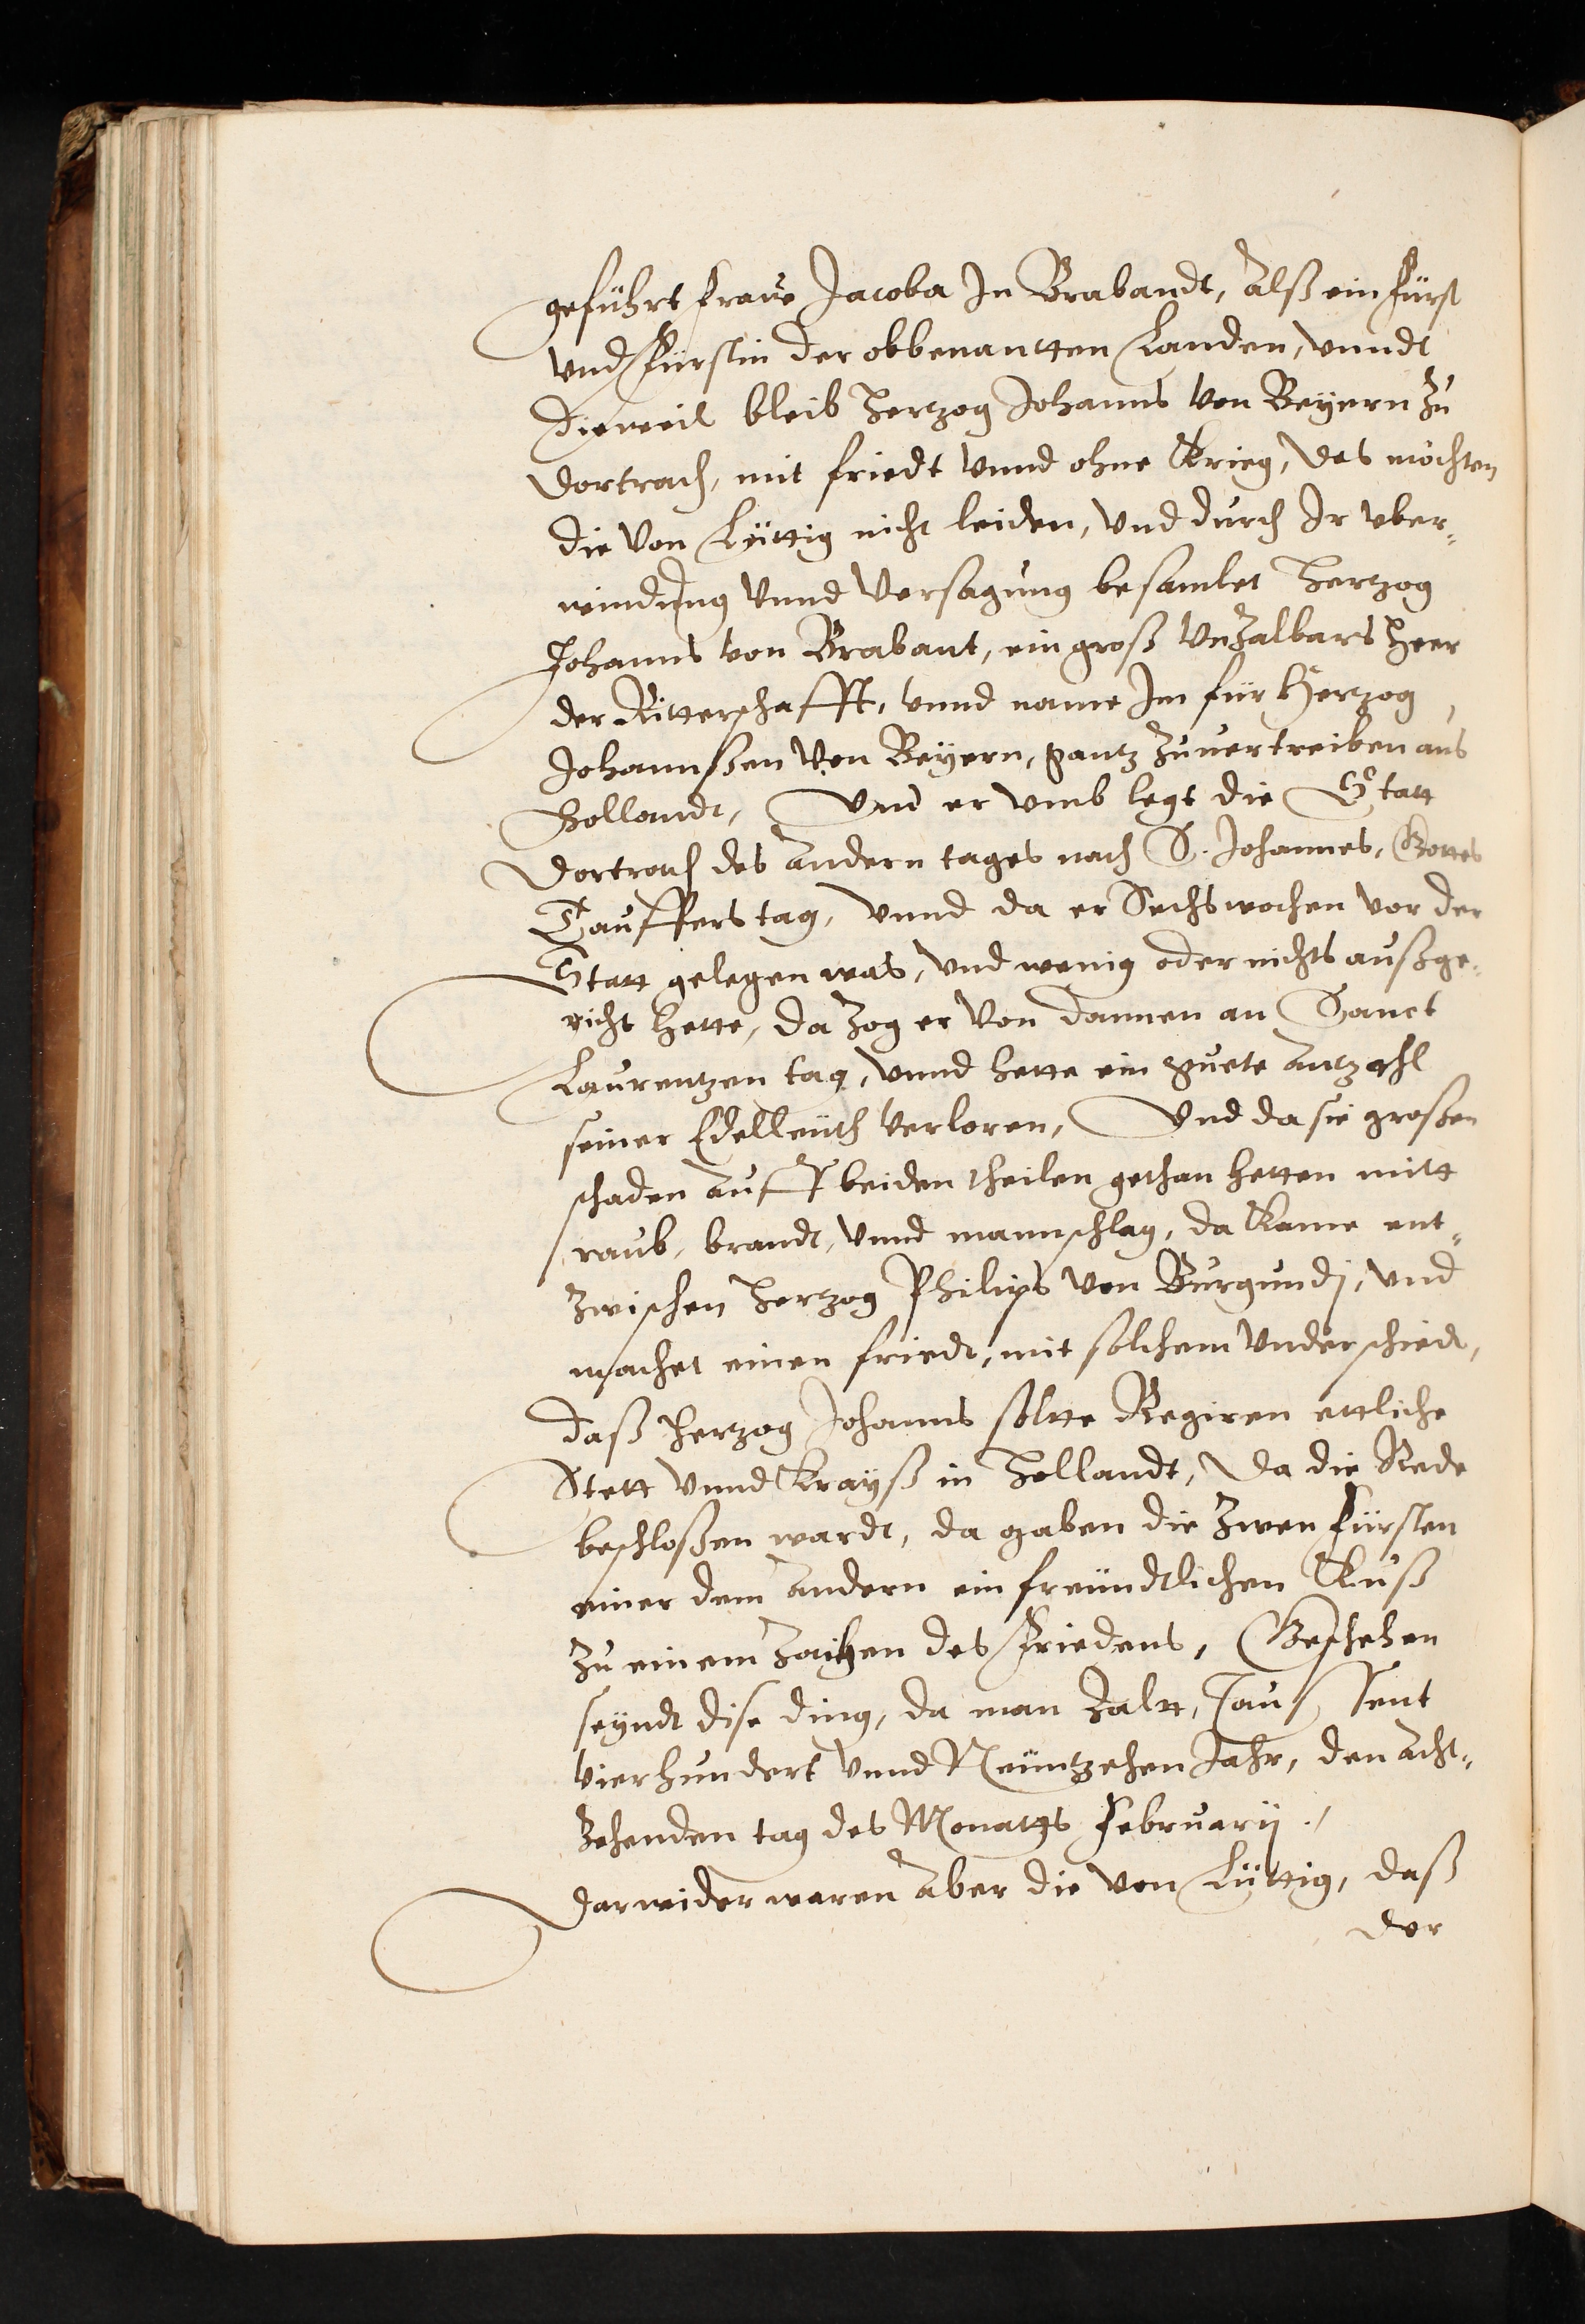 geführt fraue Jacoba In Brabandt, Alß ein fürst
vnd Fürstin der obbenantten Landen, vnndt
dieweil bleib Hertzog Johanns von Beyern Zu
Dortrach, mit friedt vnnd ohne Krieg, Das möchten
die von Lüttig nicht leiden, vnd durch Ir vber„
windung vnnd Versagung besamlet Hertzog
Johanns von Brabant, ein groß vnZalbars Heer
der Ritterschafft, vnnd name Im für Hertzog
Johannßen von Beyern, gantz Zuuertreiben aus
Hollandt, Vnd er vmb legt die Statt
Dortrach des Andern tages nach S. Johannes, Gottes
Tauffers tag, vnnd da er Sechs wochen vor der
Statt gelegen was, vnd wenig oder nichts außge„
richt hette, da Zog er von dannen an Sanct
Laurentzen tag, vnnd hette ein guete Antzahl
seiner Edelleüth verloren, Vnd da sie großen
schaden Auff beiden theilen gethan hetten mitt
raub, brandt, vnnd mannschlag, da Kame ent„
Zwischen Hertzog Philips von Burgundj, vnd
machet einen friedt, mit solchem vnderschiedt,
daß Hertzog Johanns soltte Regiren ettliche
Stett vnnd Krayß in Hollandt, Da die Rede
beschloßen wardt, da gaben die Zwen fürsten
einer dem Andern ein freündtlichen Kuß
Zu einem Zaichen des Friedens, Geschehen
seyndt dise ding, da man Zaltt, Taußent
vierhundert vnnd Neüntzehen Jahr, den Acht„
Zehenden tag des Monatts February.
Darwider waren Aber die von Lüttig, daß
der